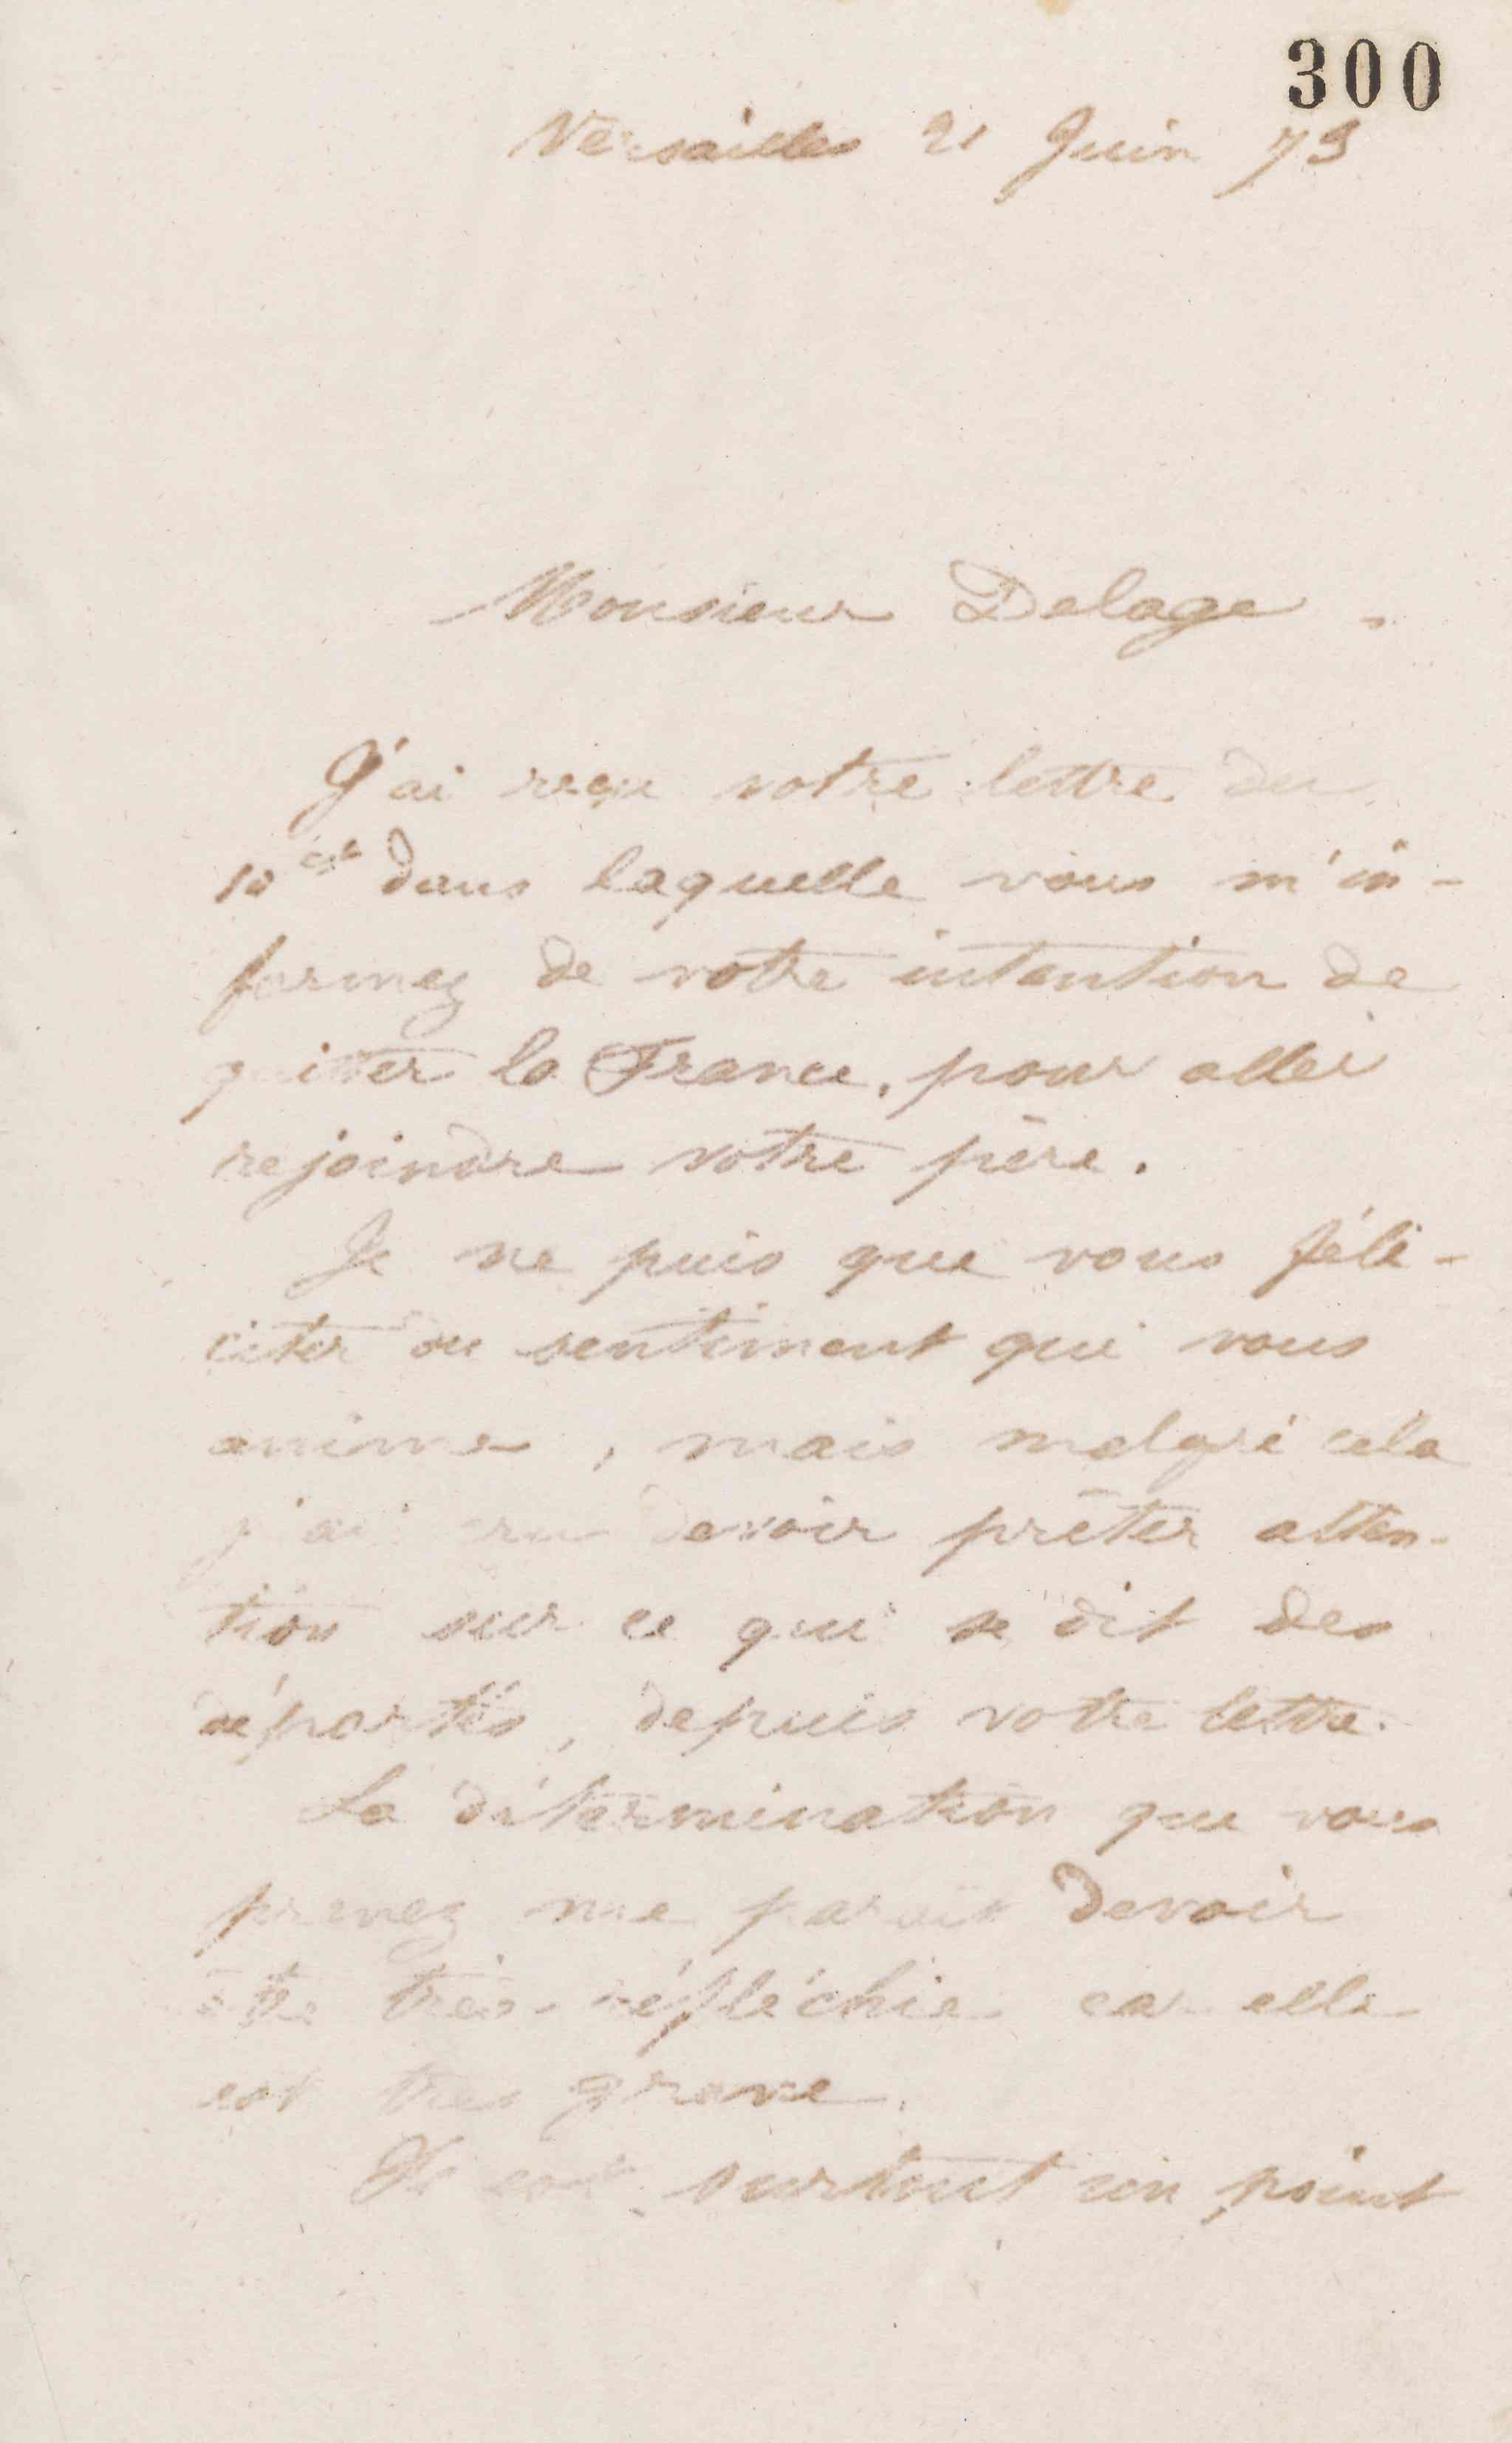 300
Versailles 21 Juin 73
Monsieur Delage.
J'ai reçu votre lettre du
10 ct dans laquelle vous m'in-
formez de votre intention de
quitter la France, pour aller
rejoindre votre père.
Je ne puis que vous féli-
citer du sentiment qui vous
anime, mais malgré cela
j'ai cru devoir prêter atten-
tion sur ce qui se dit des
déportés, depuis votre lettre.
La détermination que vous
prenez me parait devoir
être très-réfléchie car elle
est très grave.
surtout un point